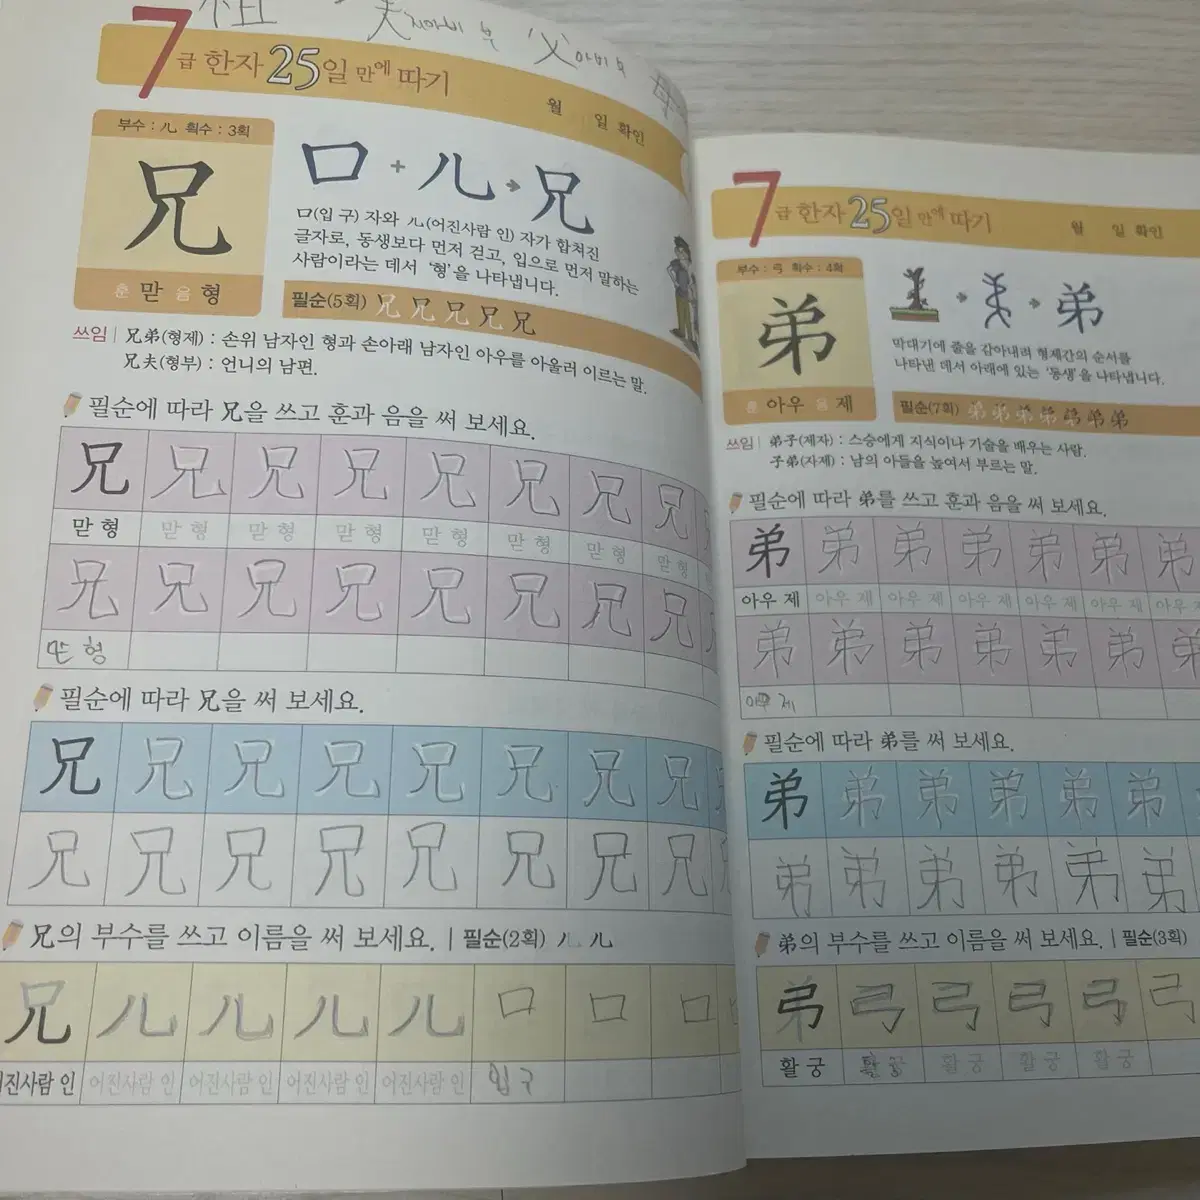 夫 지아비 부 父 아비 부 母
7급 한자 25일 만에 따기
월 일 확인
부수 : 儿 획수 : 3획
兄
훈 맏 음 형
口 + 儿 → 兄
口(입 구) 자와 儿(어진사람 인) 자가 합쳐진
글자로, 동생보다 먼저 걷고, 입으로 먼저 말하는
사람이라는 데서 '형'을 나타냅니다.
필순(5획) 兄 兄 兄 兄 兄
쓰임 | 兄弟(형제) : 손위 남자인 형과 손아래 남자인 아우를 아울러 이르는 말.
兄夫(형부) : 언니의 남편.
필순에 따라 兄을 쓰고 훈과 음을 써 보세요.
兄 兄 兄 兄 兄 兄 兄 兄
맏 형 맏 형 맏 형 맏 형 맏 형 맏 형 맏 형 맏 형
兄 兄 兄 兄 兄 兄 兄 兄
맏 형
필순에 따라 兄을 써 보세요.
兄 兄 兄 兄 兄 兄 兄 兄
兄 兄 兄 兄 兄 兄 兄 兄
兄의 부수를 쓰고 이름을 써 보세요. | 필순(2획) 儿 儿
兄 儿 儿 儿 儿 口 口 口
어진사람 인 어진사람 인 어진사람 인 어진사람 인 어진사람 인 입 구
7급 한자 25일 만에 따기
월 일 확인
부수 : 弓 획수 : 4획
弟
훈 아우 음 제
弟
막대기에 줄을 감아내려 형제간의 순서를
나타낸 데서 아래에 있는 '동생'을 나타냅니다.
필순(7획) 弟 弟 弟 弟 弟 弟 弟
쓰임 | 弟子(제자) : 스승에게 지식이나 기술을 배우는 사람.
子弟(자제) : 남의 아들을 높여서 부르는 말.
필순에 따라 弟를 쓰고 훈과 음을 써 보세요.
弟 弟 弟 弟 弟 弟 弟
아우 제 아우 제 아우 제 아우 제 아우 제 아우 제 아우
弟 弟 弟 弟 弟 弟 弟
아우 제
필순에 따라 弟를 써 보세요.
弟 弟 弟 弟 弟 弟
弟 弟 弟 弟 弟 弟
弟의 부수를 쓰고 이름을 써 보세요. | 필순(3획)
弟 弓 弓 弓 弓 弓
활 궁 활 궁 활 궁 활 궁 활 궁